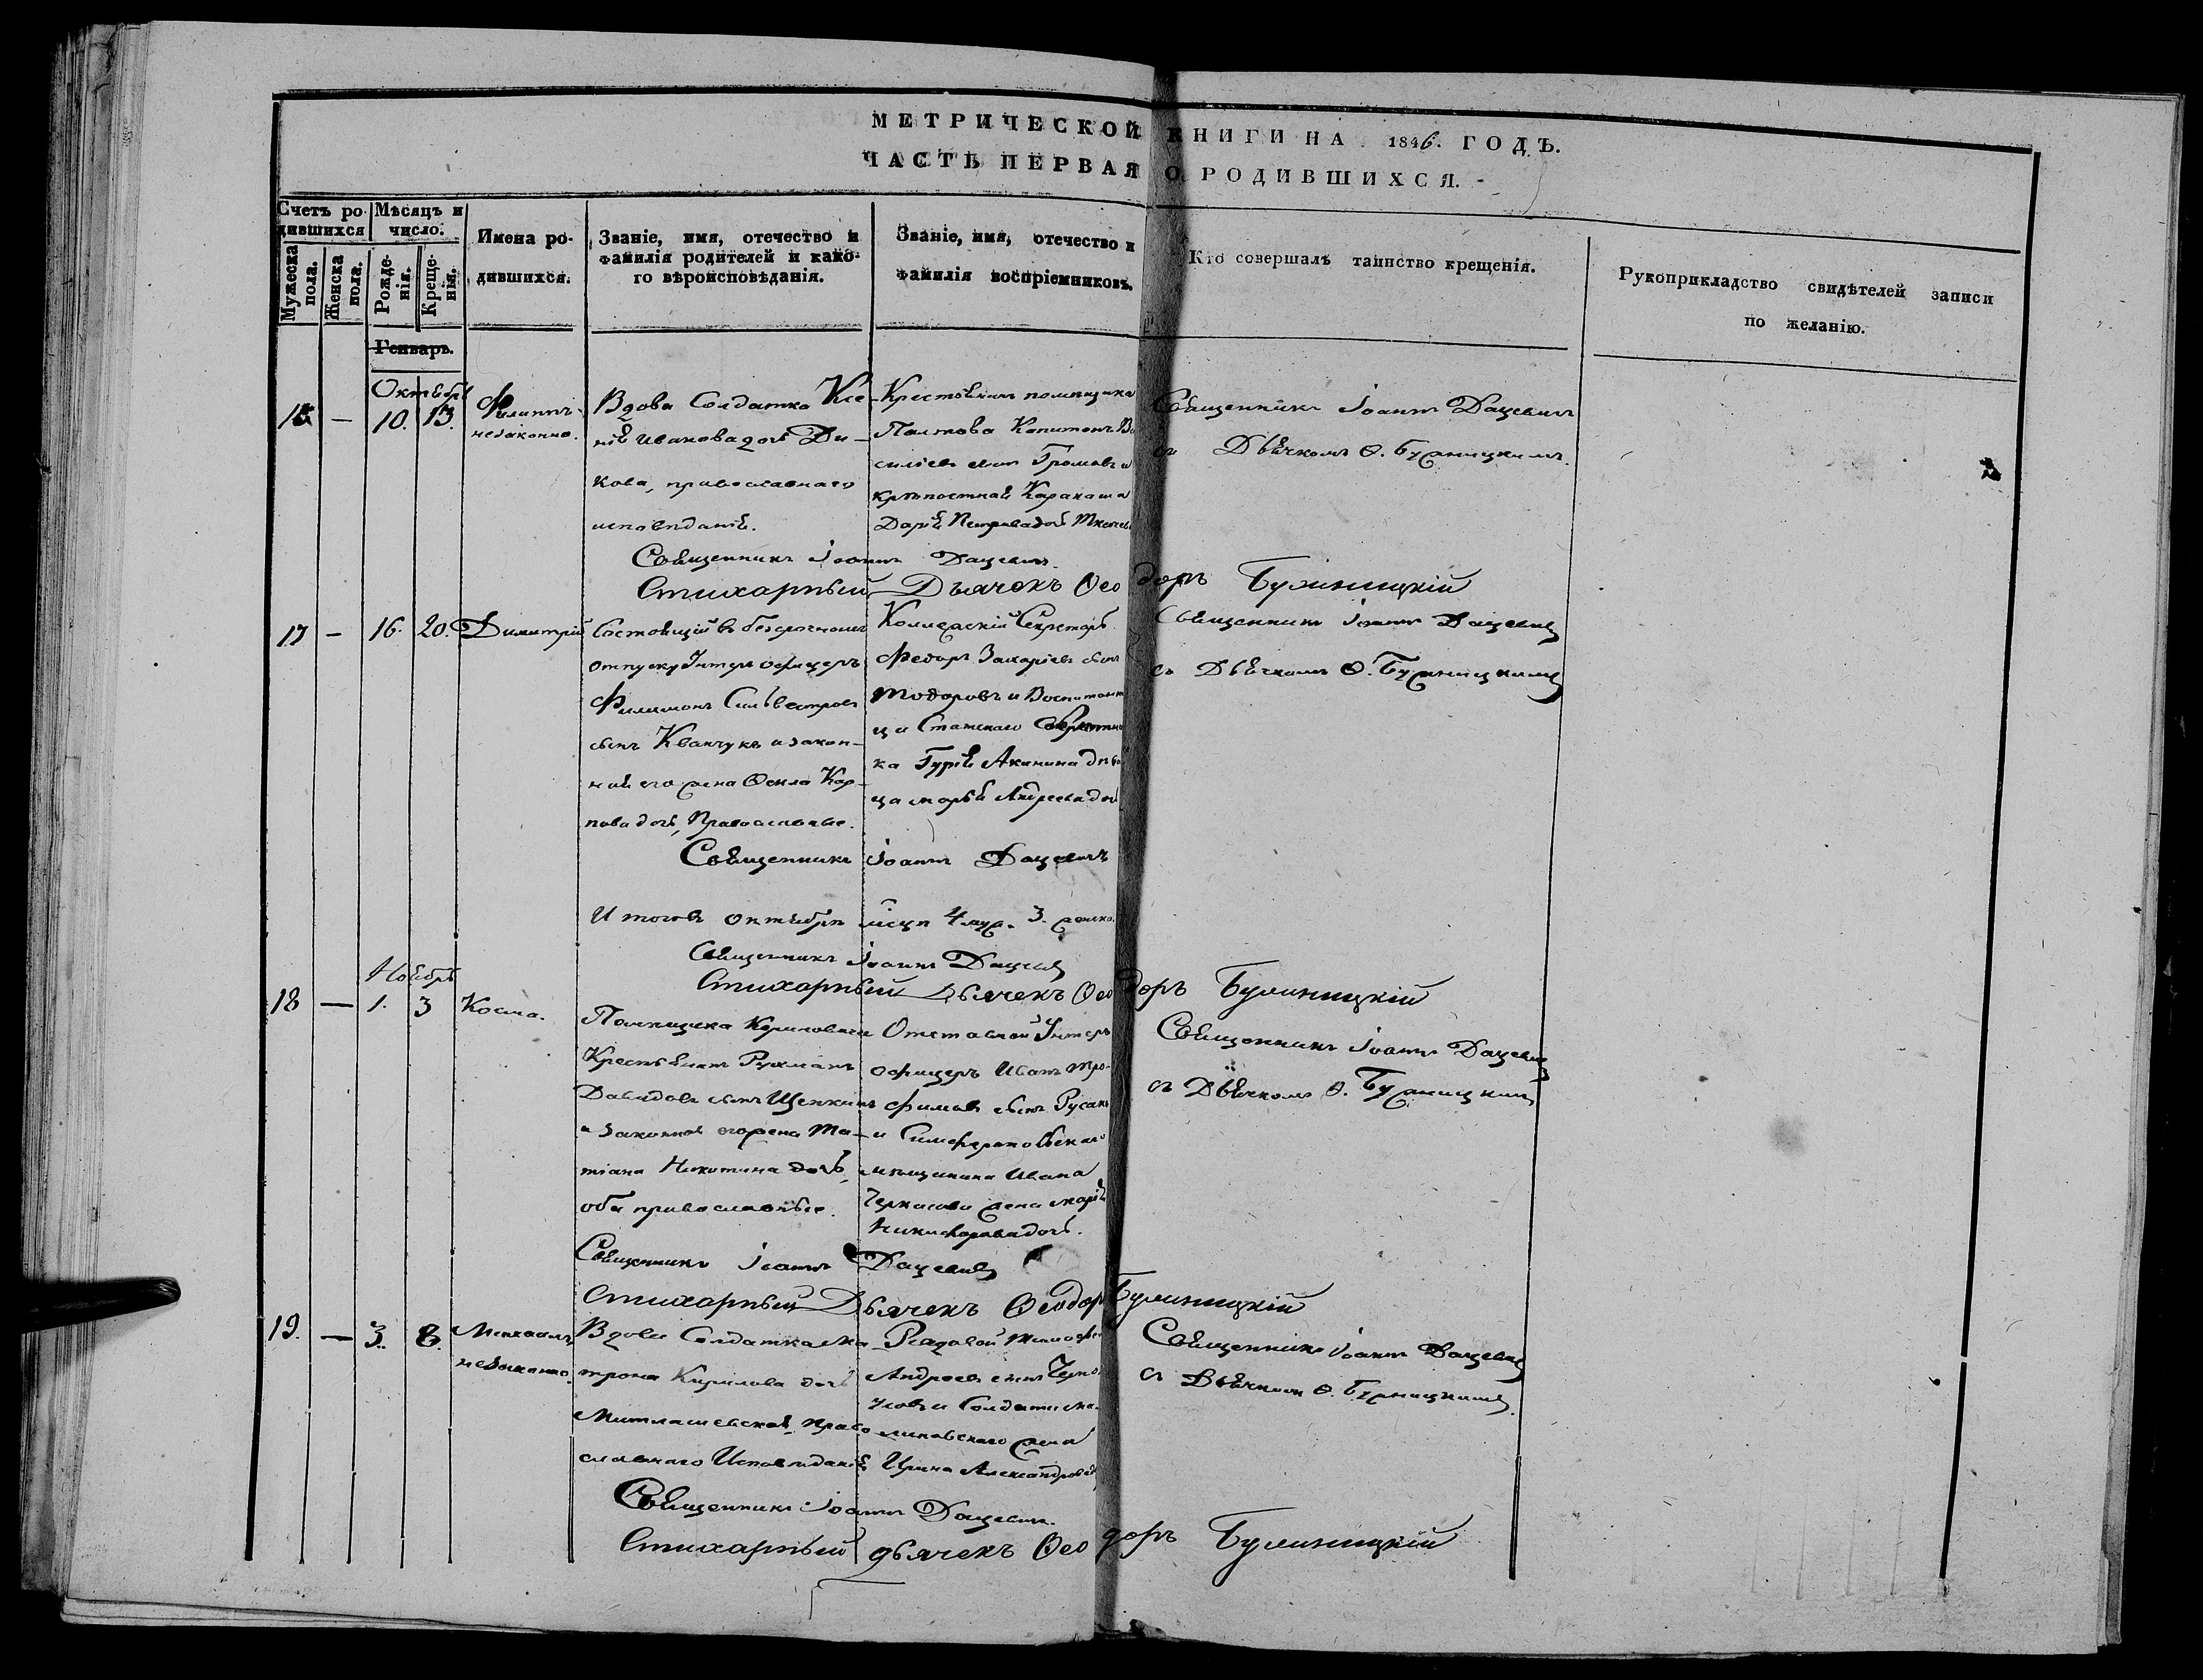 МЕТРИЧЕСКОЙ КНИГИ НА 1846. ГОДЪ.
ЧАСТЬ ПЕРВАЯ О РОДИВШИХСЯ.
Счетъ родившихся
Мужеска пола.
Женска пола.
Мѣсяцъ и число.
Рожденія.
Крещенія.
Имена родившихся.
Званіе, имя, отечество и фамилія родителей и какого вѣроисповѣданія.
Званіе, имя, отечество и фамилія воспріемниковъ.
Кто совершалъ таинство крещенія.
Рукоприкладство свидѣтелей записи по желанію.
Генварь.
Октябрь
16 — 10. 13. Филиппъ незаконно.
Вдова Солдатка Ксе-
нія Иванова дочь Ди-
кова, православнаго
исповѣданія.
Крестьянинъ помѣщика
Полтова Капитонъ Ва
сильевъ сынъ Громовъ и
крѣпостная Каракаша
Дарія Петрова дочь
Священникъ Іоаннъ Дацевичъ
съ Дьячкомъ Ѳ. Бужиницкимъ.
Священникъ Іоаннъ Дацевичъ.
Стихарный Дьячекъ Ѳеодоръ Бужиницкій
17 — 16. 20. Димитрій
Состоящій въ безсрочномъ
отпуску Унтеръ офицеръ
Филимонъ Сильвестровъ
сынъ Кванчукъ и закон-
ная его жена Ѳекла Кар-
пова дочь, Православные.
Коллежскій Секретарь
Федоръ Захаріевъ сынъ
Тодоровъ и Воспитанни
ца Статскаго Совѣтни
ка Гурія Акинина дѣви
ца Марья Андреева дочь
Священникъ Іоаннъ Дацевичъ
съ Дьячкомъ Ѳ. Бужиницкимъ
Священникъ Іоаннъ Дацевичъ
Итого въ октябрѣ мѣсяцѣ 4 муж. 3. женска.
Священникъ Іоаннъ Дацевичъ
Стихарный Дьячекъ Ѳеодоръ Бужиницкій
Ноябрь
18 — 1. 3 Косма.
Помѣщика
Крестьянинъ
Давидовъ сынъ Щепкинъ
и законная его жена Та-
тіана Никитина дочь,
оба православные.
Отставной Унтеръ
офицеръ Иванъ Тро-
фимовъ сынъ Русакъ
и Симферопольскаго
мѣщанина Ивана
Черкасова жена Марія
Никифорова дочь.
Священникъ Іоаннъ Дацевичъ
съ Дьячкомъ Ѳ. Бужиницкимъ
Священникъ Іоаннъ Дацевичъ
Стихарный Дьячекъ Ѳеодоръ Бужиницкій
19. — 3. 8. Михаилъ, незаконно.
Вдова Солдатка Ма-
трона Кирилова дочь
Митлашевская, право
славнаго Исповѣданія
Рядовой Тимофей
Андреевъ сынъ
и Солдата Ма-
линовскаго жена
Ирина Александрова
Священникъ Іоаннъ Дацевичъ
съ Дьячкомъ Ѳ. Бужиницкимъ.
Священникъ Іоаннъ Дацевичъ.
Стихарный дьячекъ Ѳеодоръ Бужиницкій